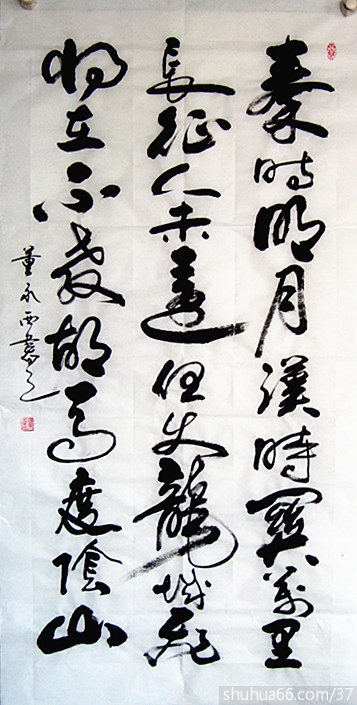 秦時明月漢時關萬里
長征人未還但使龍城飛
将在不教胡馬度陰山
董永西書
shuhua66.com/37